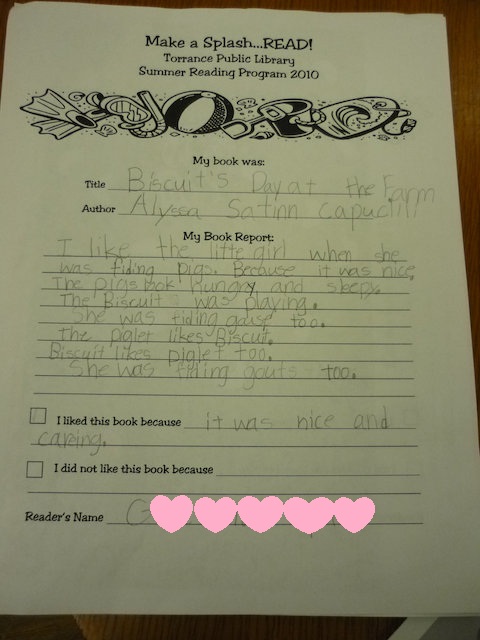 Make a Splash...READ!
Torrance Public Library
Summer Reading Program 2010
My book was:
Title Biscuit's Day at the Farm
Author Alyssa Satinn Capucilli
My Book Report:
I like the little girl when she
was fiding pigs. Because it was nice.
The pigs look hungry and sleepy.
The Biscuit was playing.
She was fiding gouse too.
the piglet likes Biscuit.
Biscuit likes piglet too.
She was fiding gouts too.
I liked this book because it was nice and
caring.
I did not like this book because
Reader's Name G